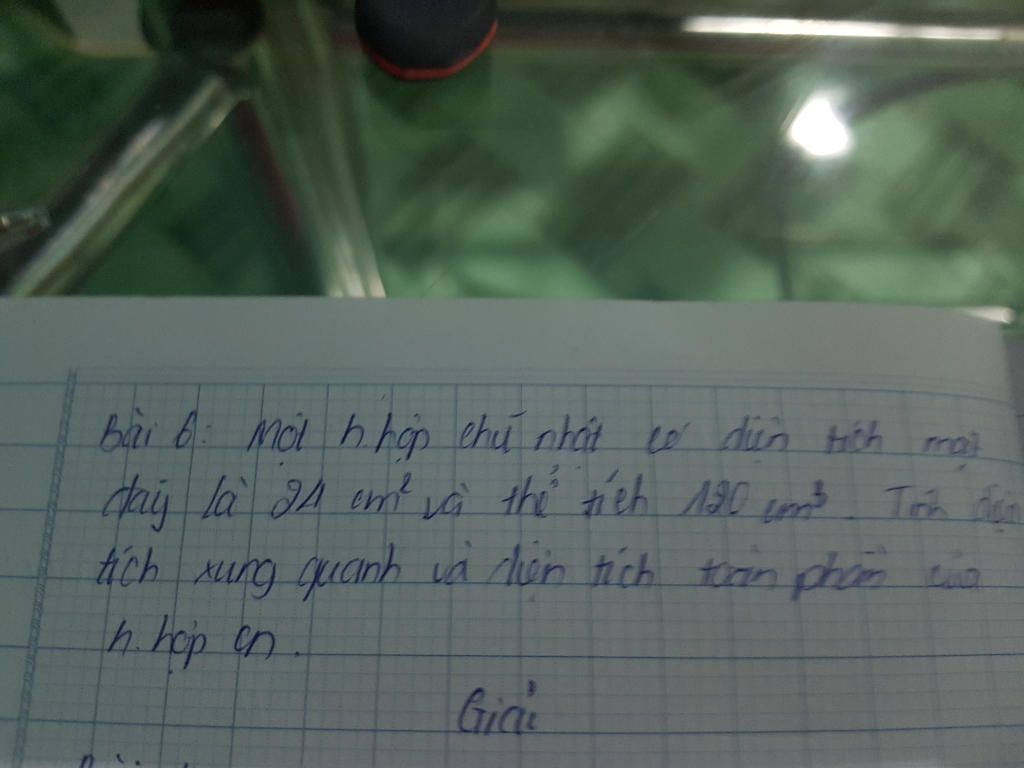 Bài 6: Một h.hộp chữ nhật có diện tích mặt
đáy là 24 cm² và thể tích 120 cm³. Tính diện
tích xung quanh và diện tích toàn phần của
h.hộp cn.
Giải